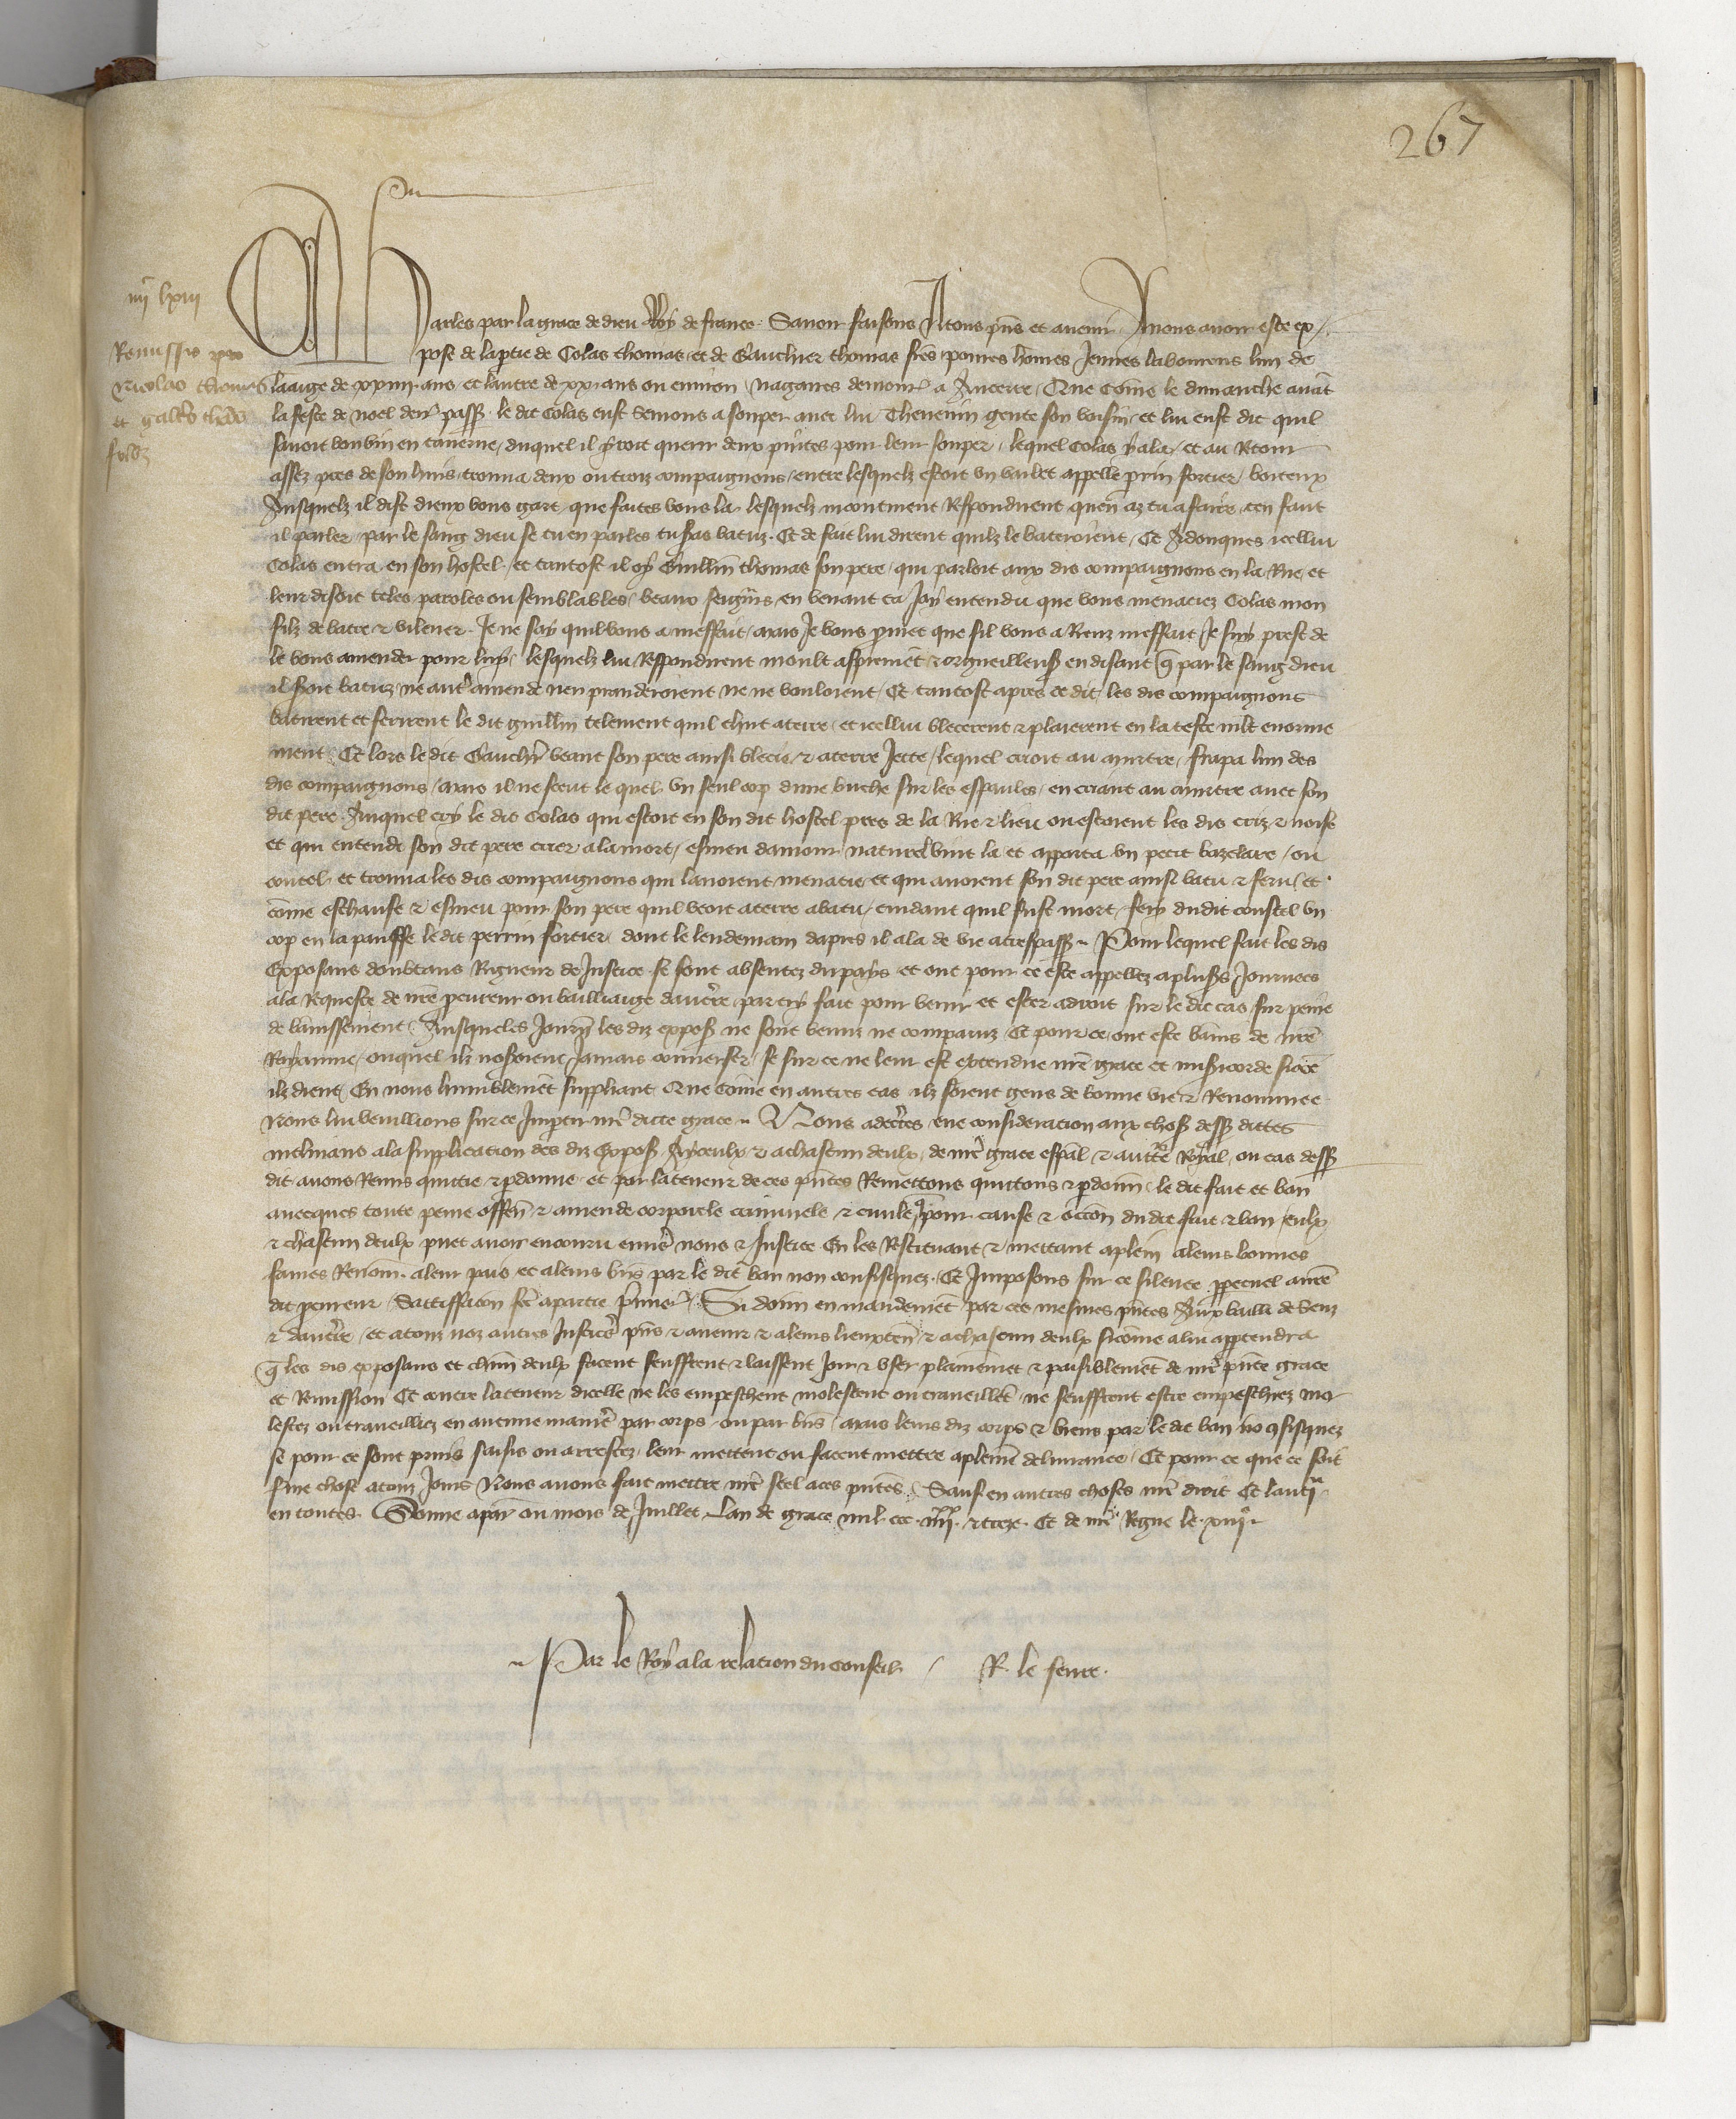 267
iiij lxiij
Remissio pro
Nicolao thomas
et galth'o thomas
frib3
Charles par la grace de dieu Roy de france. Savoir faisons A tous pns et avenir A nous avoir este ex
pose de la ptie de Colas thomas, et de Gauchier thomas freres povres homes Jennes laboureurs lun de
laaige de xxiiij. ans, et lautre de xx. ans ou environ, demour a Aucerre, Que come le dimanche avat
la feste de noel derr pass. le dit Colas eust semons a souper avec lui Thevenin gente son voisin, et lui eust dit quil
savoit bon vin en taverne, duquel il yroit querir deux pintes pour leur souper, lequel Colas y ala, et au Retour
assez pres de son huis, trouva deux ou trois compaignons, entre lesquelz estoit un varlet appelle prin fortier, boiteux
Ausquelz il dist dieux vous gart, que faites vous la. lesquelz incontinent Respondirent quen az tu a faire ten faut
il parler, par le sang dieu se tu en parles tu sas batuz. Et de fait lui dirent quilz le bateroient, Et Adonques icellui
Colas entra en son hostel, et tantost il oy Guillin thomas son pere, qui parloit aux dis compaignons en la Rue, et
leur disoit teles paroles ou semblables, beaux seigns, en venant ca Jay entendu que vous menaciez Colas mon
filz de batre & vilener. Je ne say quil vous a meffait, mais Je vous pmet que sil vous a Renz meffait Je suy prest de
le vous amender pour luy, lesquelz lui Respondirent moult asprement & orgueilleus en disant q par le sang dieu
il soit batuz, ne autr amende nen pranderoient ne ne vouloient, Et tantost apres ce dit, les dis compaignons
batirent et ferirent le dit guillin telement quil chut a terre, et icellui blecerent & plaierent en la teste mlt enorme
ment, Et lors le dit Gauchr veant son pere ainsi blecie & a terre Jecte, lequel crioit au murtre, frapa lun des
dis compaignons, mais il ne sceut le quel, un seul cop dune buche sur les espaules, en criant au murtre avec son
dit pere Auquel cry le dis Colas qui estoit en son dit hostel pres de la Rue & lieu ou estoient les dis criz & noise
et qui entendt son dit pere crier a la mort, esmeu damour naturel vint la et apporta un petit bazelare, ou
coutel, et trouva les dis compaignons qui lavoient menacie, et qui avoient son dit pere ainsi batu & feru, et
come eschaufe & esmeu pour son pere quil veoit a terre abatu, cuidant quil fust mort, fery dudit coustel un
cop en la pansse le dit perrin fortier, dont le lendemain dapres il ala de vie a trespass. Pour lequel fait les dis
Exposans doubtans Rigueur de Justice se sont absentez du pays et ont pour ce este appellez a pluss Journees
a la Requeste de nre preur ou bailliaige daucrre, par cry fait pour venir et ester a droit sur le dit cas, sur peine
de banissement, Ausqueles Journ les diz expos ne sont venuz ne comparuz, Et pour ce, ont este banis de nre
Royaume, ouquel ilz noseroient Jamais converser, se sur ce ne leur est extendue nre grace et misicorde sicoe
ilz dient, En nous humblemet suppliant, Que come en autres cas ilz soient gens de bonne vie & Renommee
Nous lui veuillions sur ce Imptir nre dicte grace. Nous adcrtes eue consideration aux chos dess dittes
inclinans a la supplication des diz Expos, A yceulx & a chascun deulx, de nre grace espal & auctte Royal, ou cas dess
dit avons Remis quictie & pdonne, et par la teneur de ces pntes Remettons quictons & pdonn, le dit fait et ban
avecques toute peine offen & amende corporele criminele & civile q pour cause & occon dudit fait & ban, eulx
& chascun deulx puet avoir encouru envrs nous & Justice En les Restituant & mettant a plein a leurs bonnes
fames Renom. a leur pais et a leurs bns par le dit ban non confisquez. Et Imposons sur ce silence ppetuel a nre
dit preur, Satisffacon fce a partie Si donn en mandemet par ces mesmes pntes Aux bailli de Senz
& daucrre, et a touz noz autres Justicrs pns & avenir & a leurs lieuxten & a chascun deulx sicome a lui apptendra
q les dis exposans et chun deulx facent seuffrent & laissent Jouir & user plainemet & paisiblemet de nre pnte grace
et Remission Et contre la teneur dicelle ne les empeschent molestent ou traveillet, ne seuffrent estre empeschiez mo
lestez ou traveilliez en aucune manre par corps ou par bns, mais leurs diz corps & biens par le dit ban no cfisquez
se pour ce sont prins saisis ou arrestez, leur mettent ou facent mettre a pleine delivrance, Et pour ce que ce soit
fme chose a touz Jours Nous avons fait mettre nre scel a ces pntes, Sauf en autres choses nre droit Et lautrui
en toutes. Donne a par ou mois de Juillet Lan de grace mil. ccc. iiij xx. & treze. Et de nre Regne le. xiij e.
Par le Roy a la relation du conseil. R. le fevre.